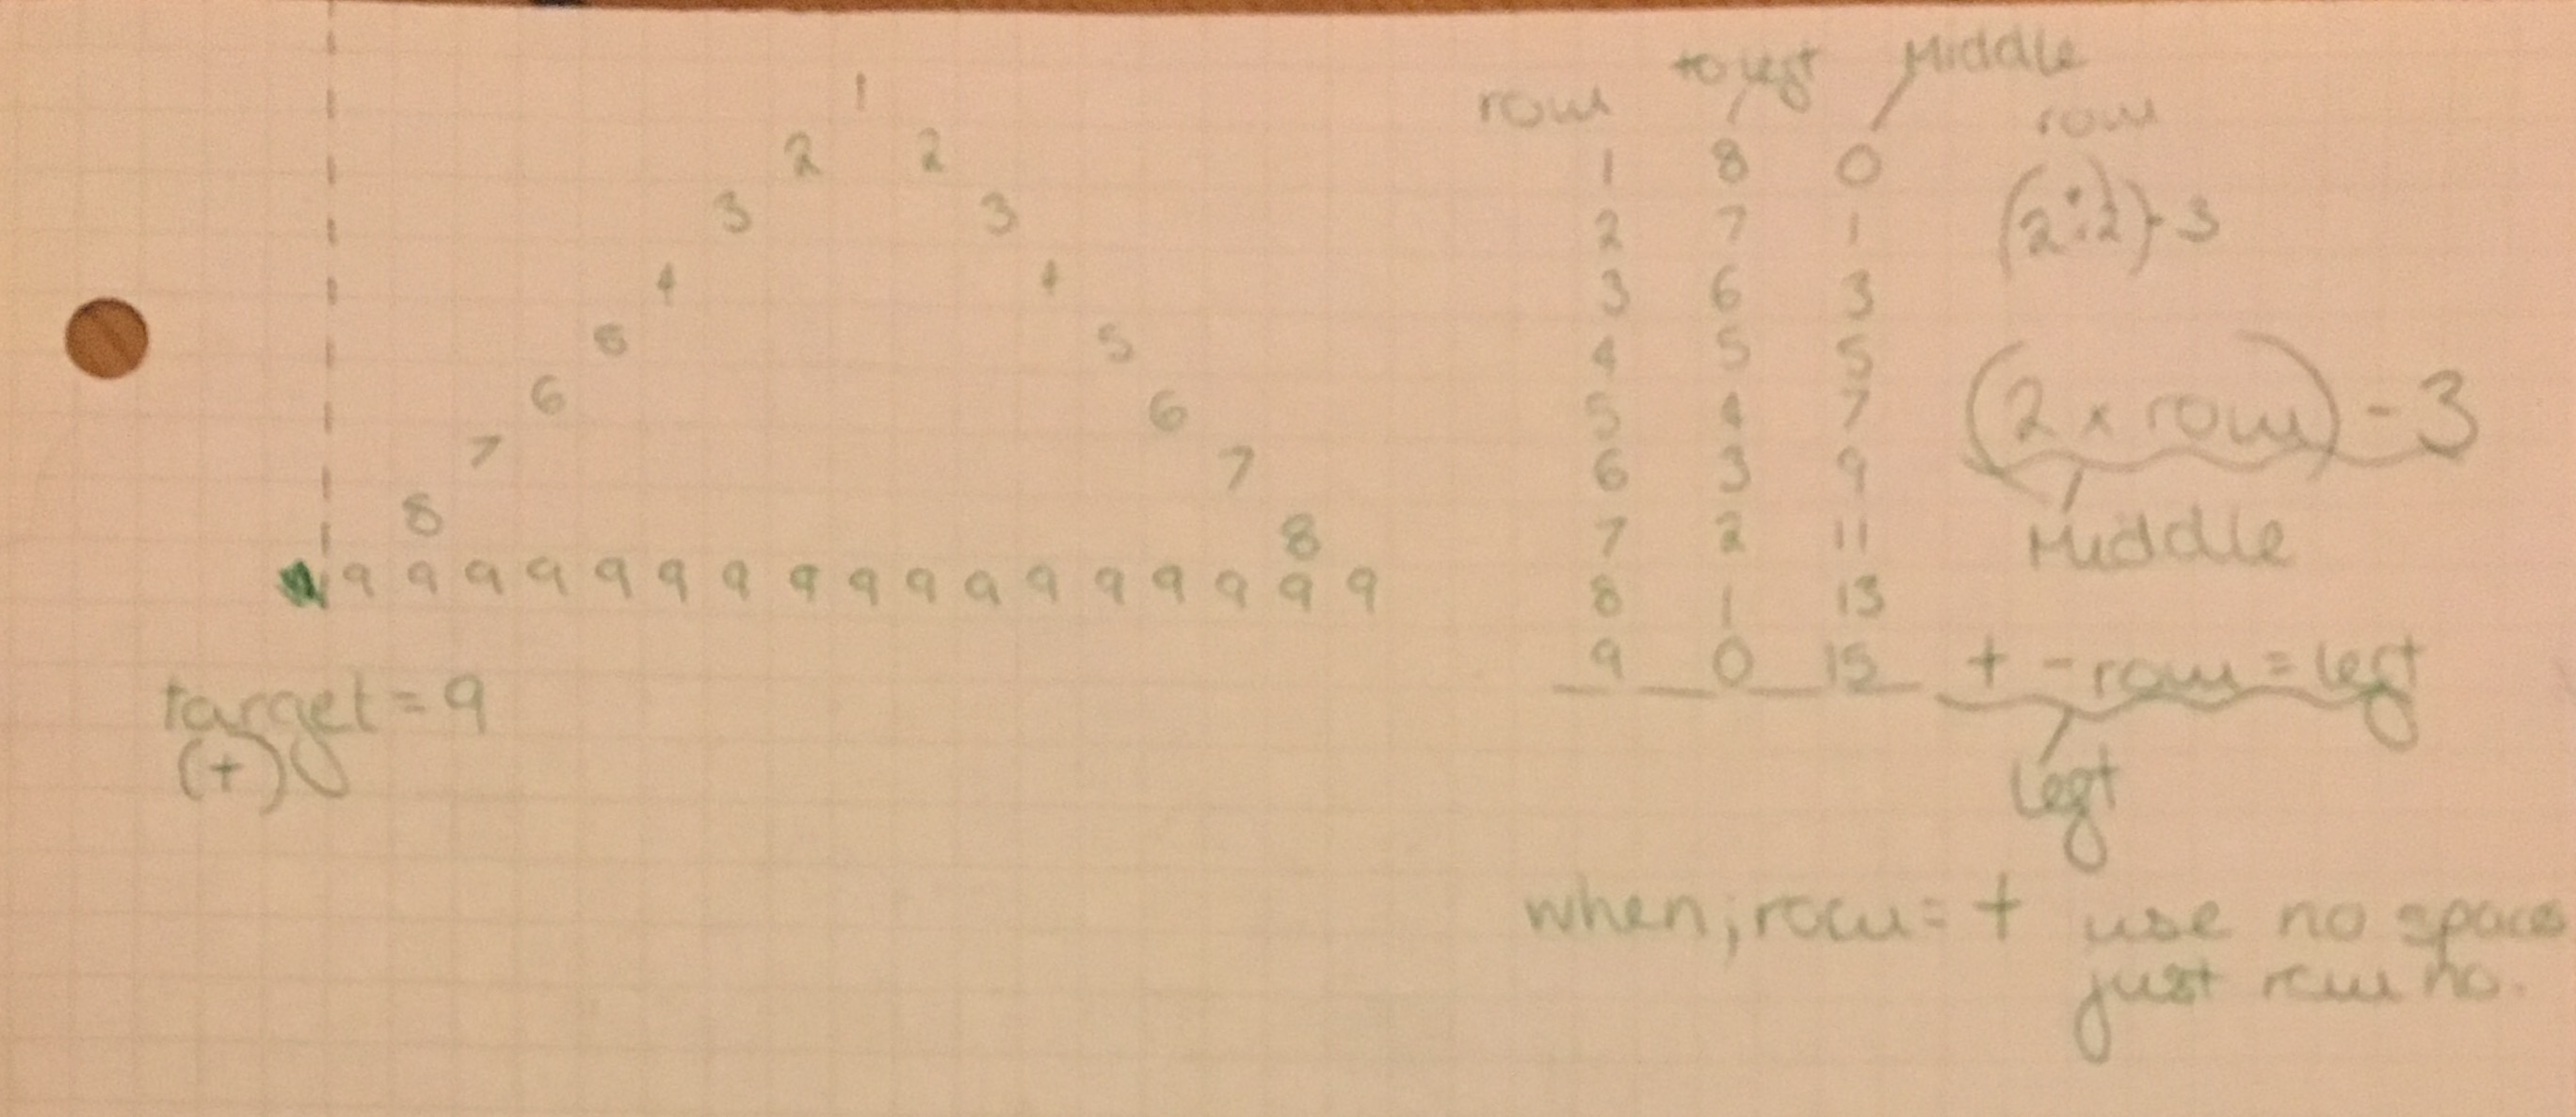 1
2 2
3 3
4 4
5 5
6 6
7 7
8 8
9 9 9 9 9 9 9 9 9 9 9 9 9 9 9 9 9
target = 9
(t)
row to left Middle
1 8 0
2 7 1
3 6 3
4 5 5
5 4 7
6 3 9
7 2 11
8 1 13
9 0 15
row
- 3
(2 x row) - 3
Middle
t - row = left
left
when, row = t use no spaces
just row no.